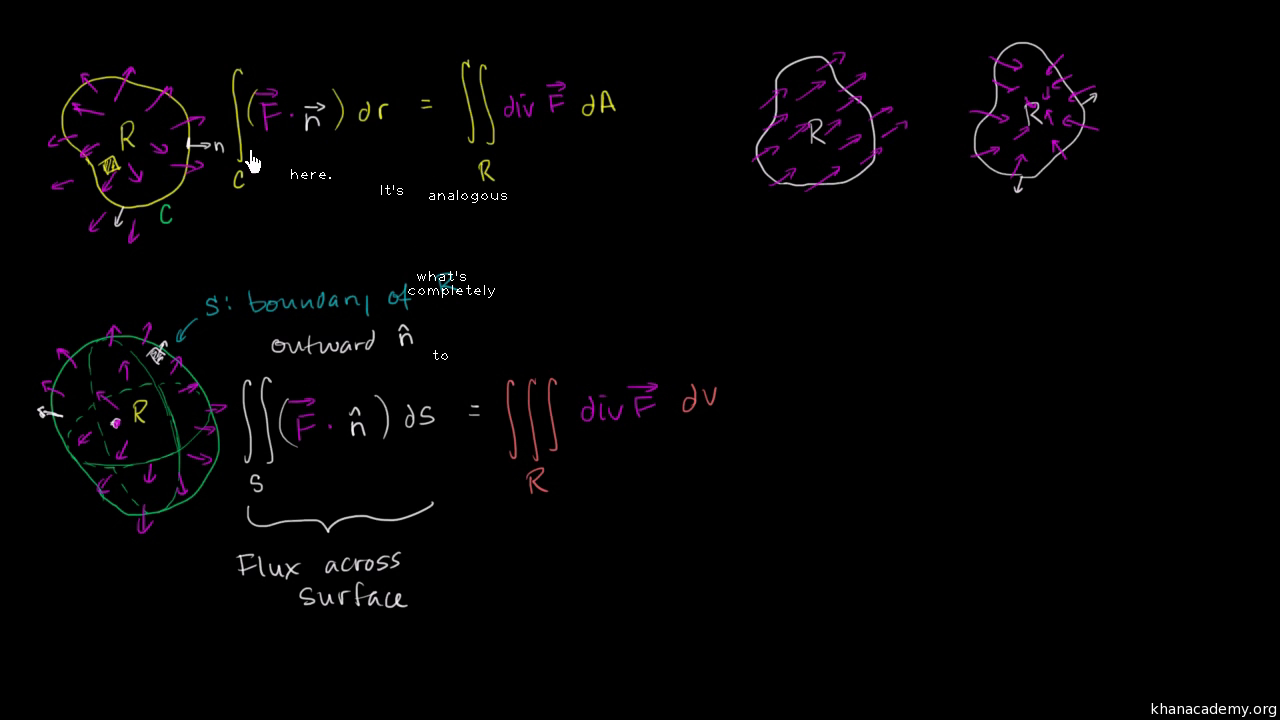 R
n
C
∫ (F⃗ · n⃗) dr = ∬ div F⃗ dA
C
R
R
R
here.
It's
analogous
what's
completely
S: boundary of R
outward n̂
to
R
∬ (F⃗ · n̂) dS = ∭ div F⃗ dV
S
R
Flux across
surface
khanacademy.org